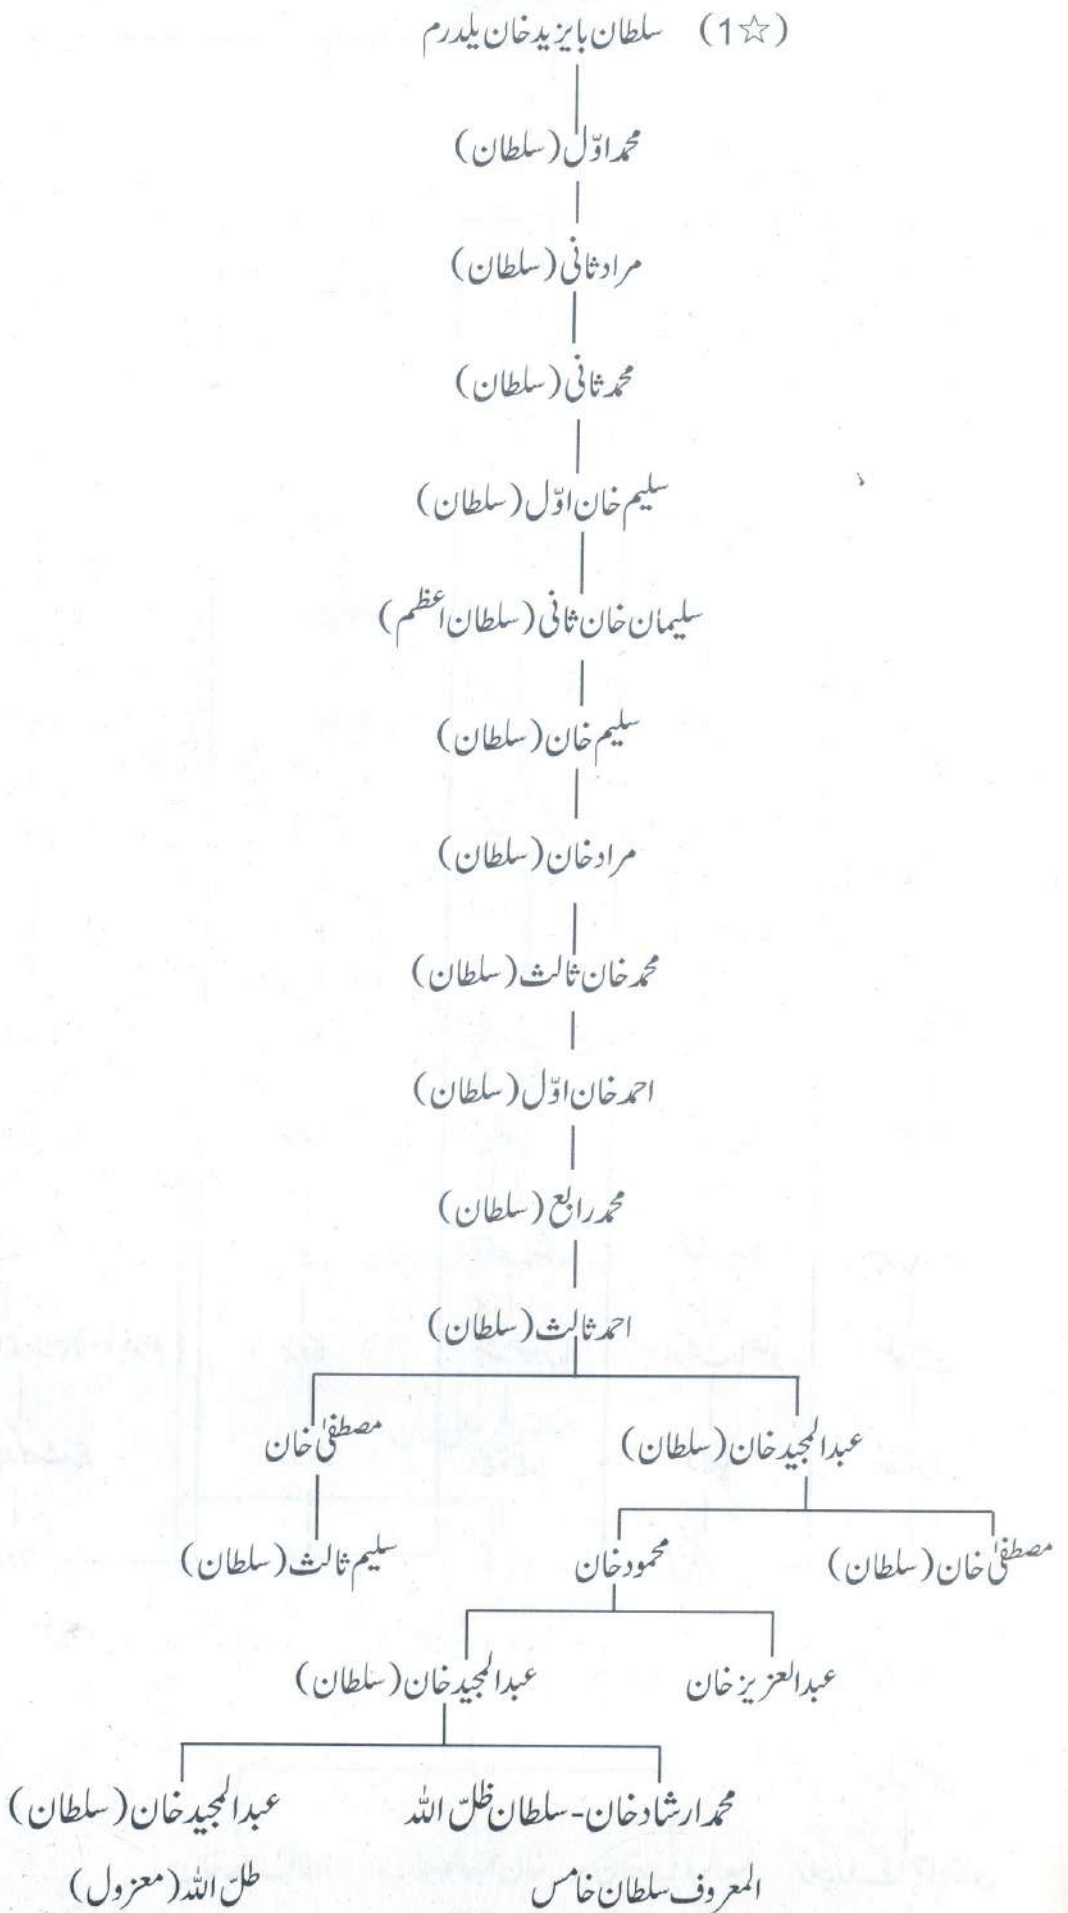 (☆1) سلطان بایزید خان یلدرم
محمد اوّل (سلطان)
مراد ثانی (سلطان)
محمد ثانی (سلطان)
سلیم خان اوّل (سلطان)
سلیمان خان ثانی (سلطان اعظم)
سلیم خان (سلطان)
مراد خان (سلطان)
محمد خان ثالث (سلطان)
احمد خان اوّل (سلطان)
محمد رابع (سلطان)
احمد ثالث (سلطان)
عبدالمجید خان (سلطان) مصطفیٰ خان
مصطفیٰ خان (سلطان) محمود خان سلیم ثالث (سلطان)
عبدالعزیز خان عبدالمجید خان (سلطان)
محمد ارشاد خان - سلطان ظلّ اللہ عبدالمجید خان (سلطان)
المعروف سلطان خامس ظلّ اللہ (معزول)